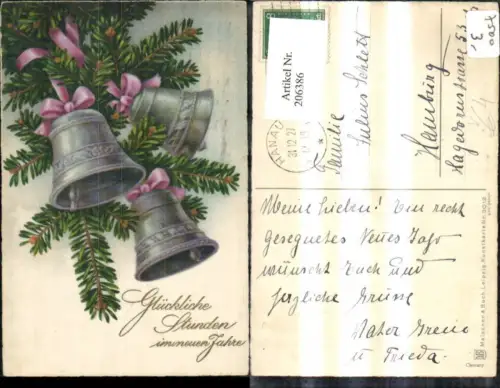 Glückliche
Stunden
im neuen Jahre
Artikel Nr.
206386
HANAU
31.12.27
Familie
Julius Schlett
Hamburg
53
Meine Lieben! Ein recht
gesegnetes Neues Jahr
wünscht Euch und
herzliche Grüsse
Vater
u Frieda.
Meissner & Buch, Leipzig. Künstlerkarte
Germany